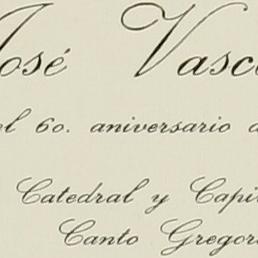 José Vasc
el 6o. aniversario d
Catedral y Capi
Canto Gregor